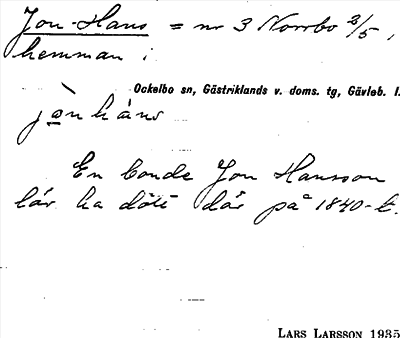 Jon-Hans = nr 3 Norrbo 2/5,
hemman i
Ockelbo sn, Gästriklands v. doms. tg, Gävleb. l.
jo̱nhàns
En bonde Jon Hansson
lär ha dött där på 1840-t.
LARS LARSSON 1935